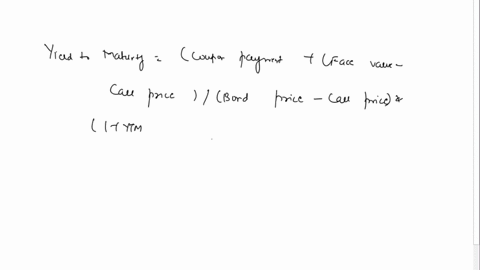 Yield to Maturity = (Coupon payment + (Face value -
Call price ) / (Bond price - Call price) *
( 1 + YTM